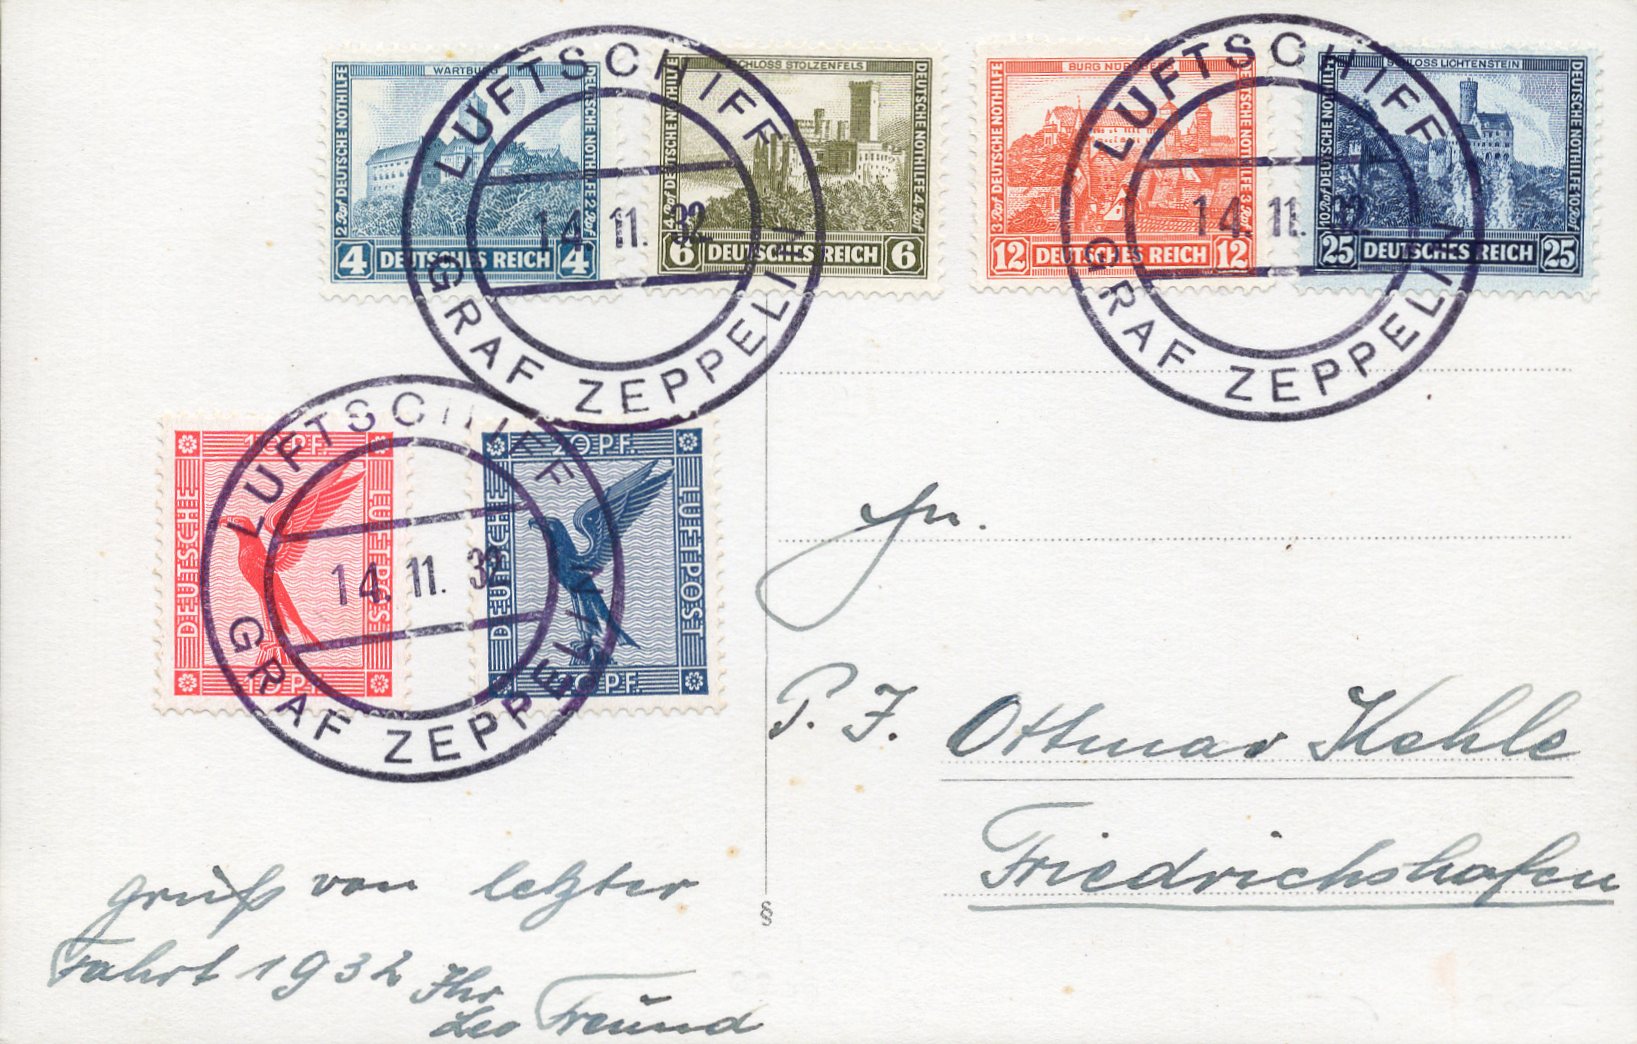 WARTBURG
2 Rpf DEUTSCHE NOTHILFE
DEUTSCHE NOTHILFE 2 Rpf
4 DEUTSCHES REICH 4
SCHLOSS STOLZENFELS
4 Rpf DEUTSCHE NOTHILFE
DEUTSCHE NOTHILFE 4 Rpf
6 DEUTSCHES REICH 6
LUFTSCHIFF
14.11.32
GRAF ZEPPELIN
BURG NÜRNBERG
3 Rpf DEUTSCHE NOTHILFE
DEUTSCHE NOTHILFE 3 Rpf
12 DEUTSCHES REICH 12
SCHLOSS LICHTENSTEIN
10 Rpf DEUTSCHE NOTHILFE
DEUTSCHE NOTHILFE 10 Rpf
25 DEUTSCHES REICH 25
LUFTSCHIFF
14.11.32
GRAF ZEPPELIN
10 PF.
DEUTSCHE
LUFTPOST
10 PF.
20 PF.
DEUTSCHE
LUFTPOST
20 PF.
LUFTSCHIFF
14.11.32
GRAF ZEPPELIN
Gruß von letzter
Fahrt 1932 Ihr
Leo Freund
§
Hn.
P. J. Ottmar Kehle
Friedrichshafen